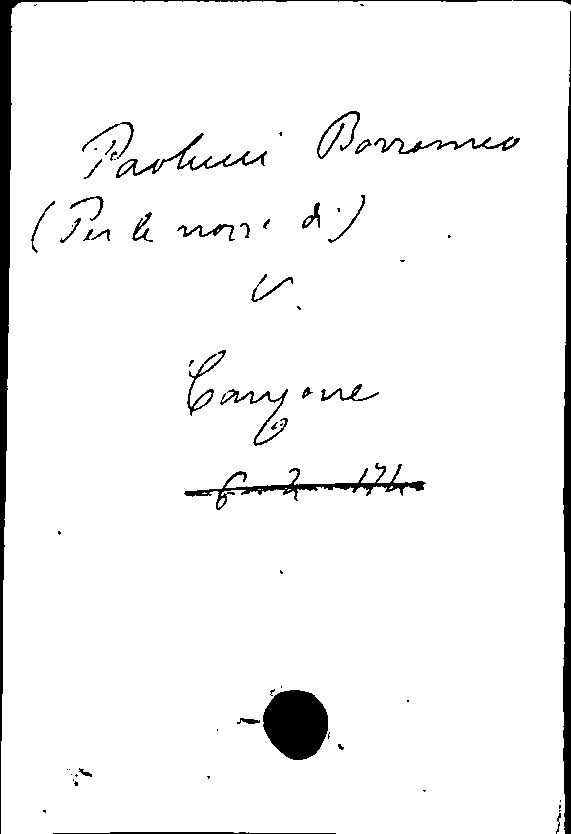 Paolucci Borromeo
(Per le nozze di)
V.
Canzone
6 2 174